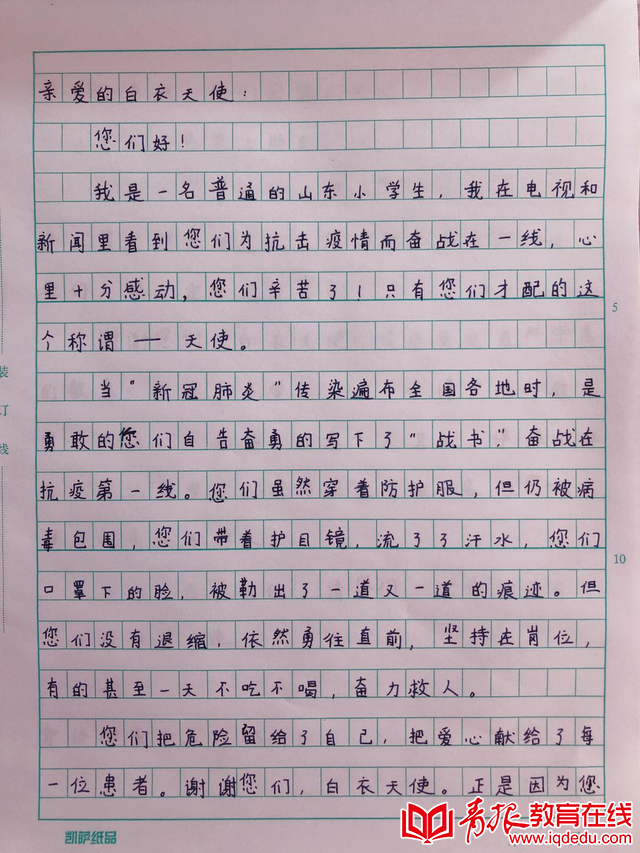 亲爱的白衣天使:
您们好!
我是一名普通的山东小学生,我在电视和
新闻里看到您们为抗击疫情而奋战在一线,心
里十分感动,您们辛苦了!只有您们才配的这
个称谓——天使。
5
当“新冠肺炎”传染遍布全国各地时,是
勇敢的您们自告奋勇的写下了“战书”,奋战在
抗疫第一线。您们虽然穿着防护服,但仍被病
毒包围,您们带着护目镜,流了了汗水,您们
10
口罩下的脸,被勒出了一道又一道的痕迹。但
您们没有退缩,依然勇往直前,坚持在岗位,
有的甚至一天不吃不喝,奋力救人。
您们把危险留给了自己,把爱心献给了每
一位患者。谢谢您们,白衣天使。正是因为您
装
订
线
凯萨纸品
青报教育在线
www.iqdedu.com